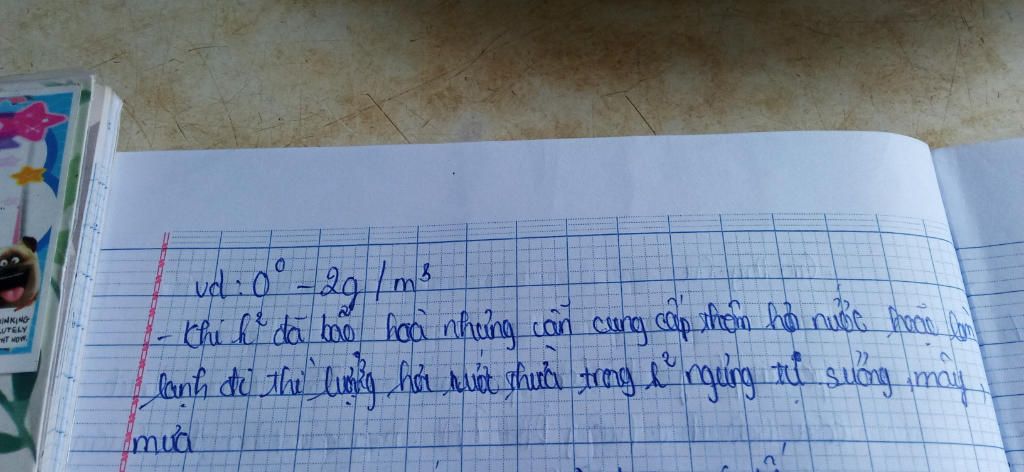 vd: 0⁰ - 2g/m³
- Khi k² đã bão hoà nhưng còn cung cấp thêm hơi nước hoặc làm
lạnh đi thì lượng hơi nước thừa trong k² ngưng tụ sương, mây,
mưa
INKING
UTELY
HT NOW.